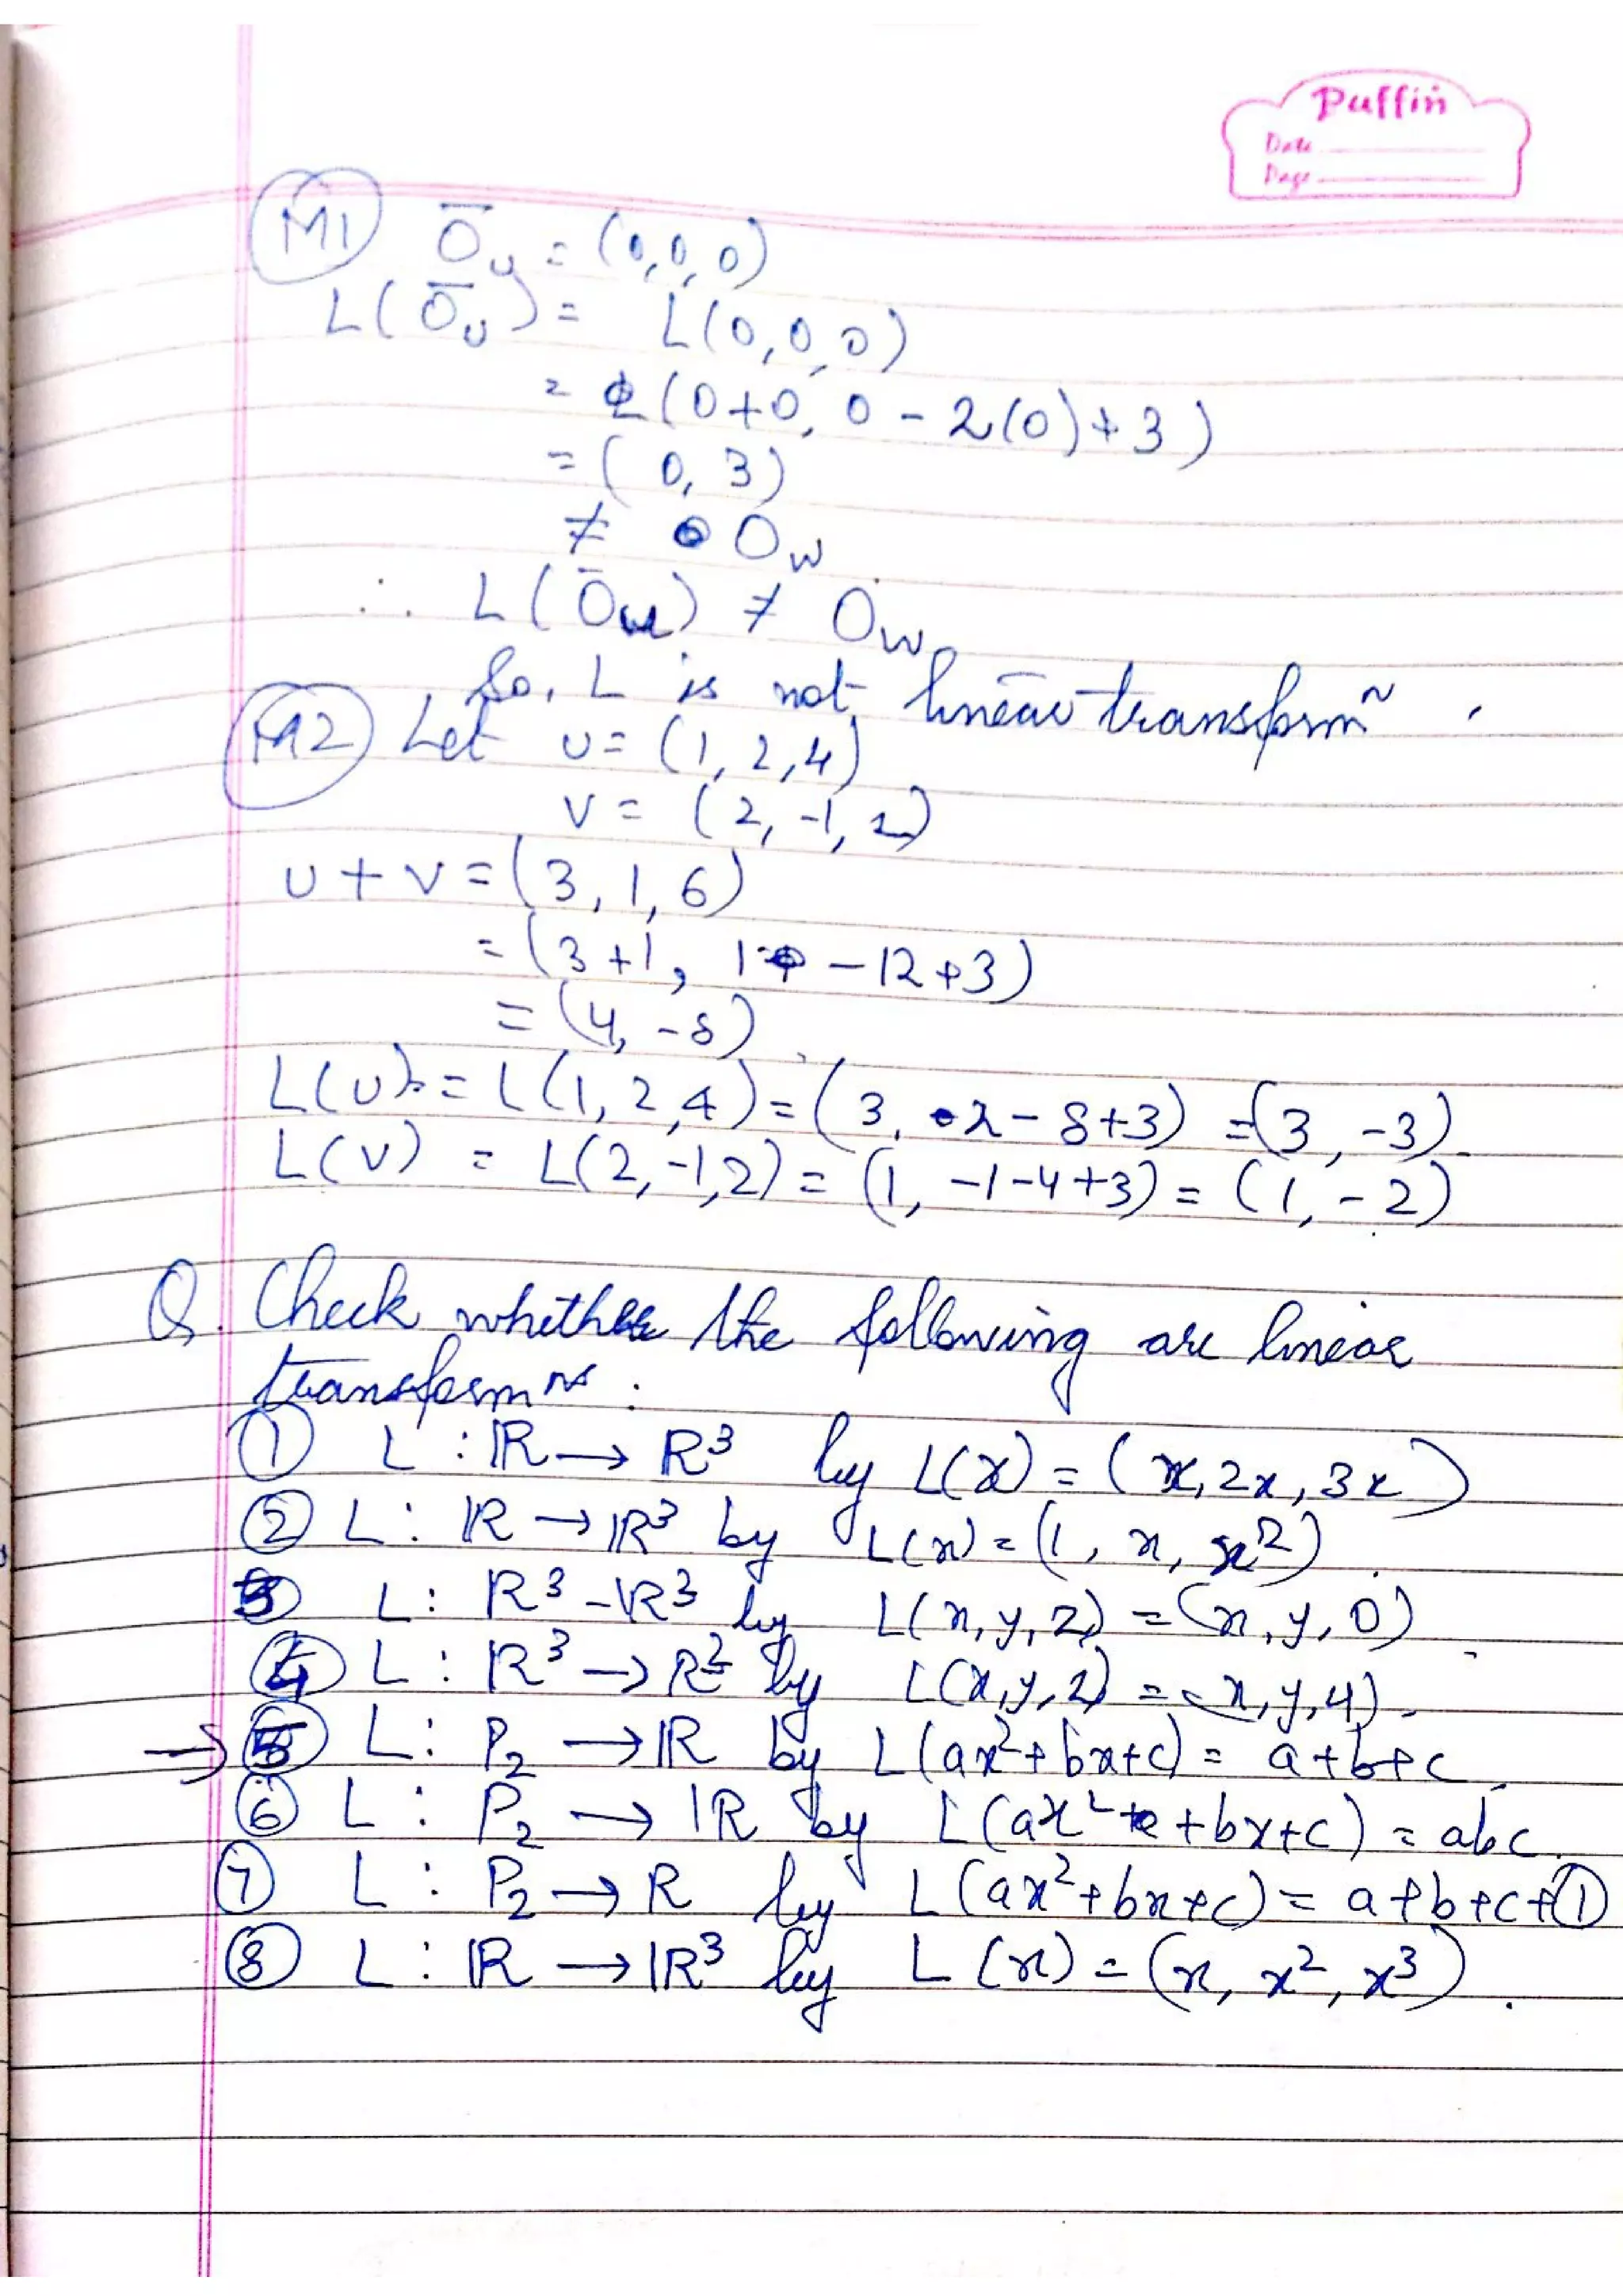 Puffin
Date
Page
M1 Ō_U = (0,0,0)
L(Ō_U) = L(0,0,0)
= (0+0, 0-2(0)+3)
= (0, 3)
≠ O_W
∴ L(Ō_U) ≠ O_W
So, L is not linear transformⁿ.
M2 Let U = (1, 2, 4)
V = (2, -1, 2)
U + V = (3, 1, 6)
= (3+1, 1 - 12 + 3)
= (4, -8)
L(U) = L(1, 2, 4) = (3, 2 - 8+3) = (3, -3).
L(V) = L(2, -1, 2) = (1, -1-4+3) = (1, -2)
Q. Check whether the following are linear
transformⁿˢ :
① L : ℝ → R³ by L(x) = (x, 2x, 3x)
② L : ℝ → ℝ³ by L(x) = (1, x, x²).
③ L : ℝ³ - ℝ³ by L(x, y, z) = (x, y, 0).
④ L : ℝ³ → R² by L(x, y, z) = (x, y, 4).
→ ⑤ L : P₂ → ℝ by L(ax² + bx + c) = a + b + c.
⑥ L : P₂ → ℝ by L(ax² + bx + c) = abc.
⑦ L : P₂ → R by L(ax² + bx + c) = a + b + c + ①
⑧ L : ℝ → ℝ³ by L(x) = (x, x², x³).